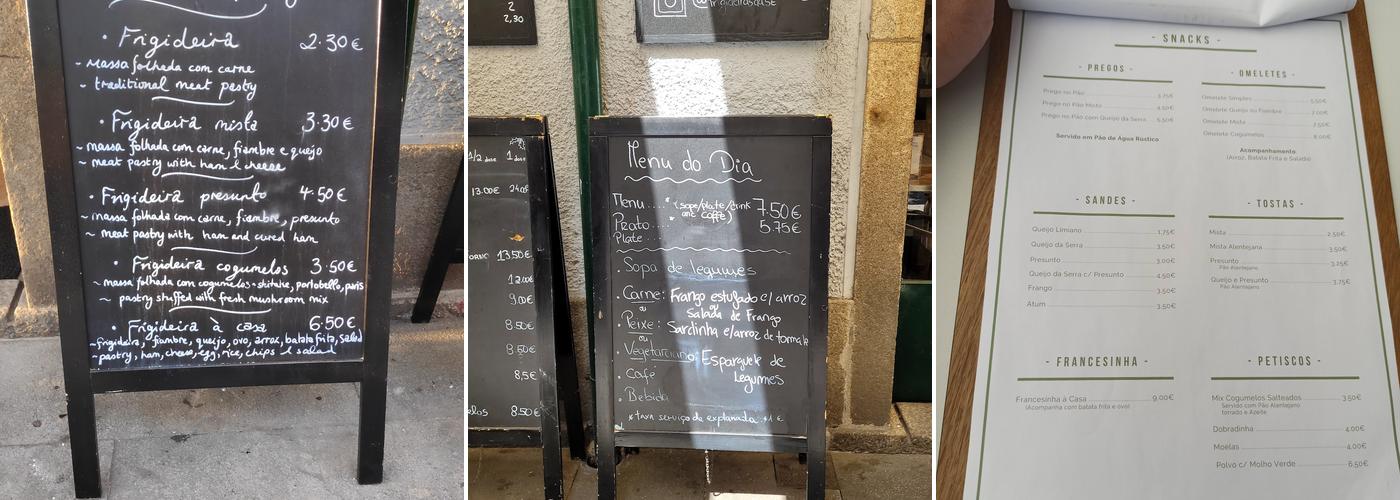 · Frigideira 2.30€
~ massa folhada com carne
~ traditional meat pastry
· Frigideira mista 3.30€
~ massa folhada com carne, fiambre e queijo
~ meat pastry with ham & cheese
· Frigideira presunto 4.50€
~ massa folhada com carne, fiambre, presunto
~ meat pastry with ham and cured ham
· Frigideira cogumelos 3.50€
~ massa folhada com cogumelos shitake, portobello, paris
~ pastry stuffed with fresh mushroom mix
· Frigideira à casa 6.50€
~ frigideira, fiambre, queijo, ovo, arroz, batata frita, salad
~ pastry, ham, cheese, egg, rice, chips & salad
2
2,30
1/2 dose 1 dose
13.00€
13.50€
12.00€
9.00€
8.50€
8.50€
8,5€
elos 8.50€
Menu do Dia
Menu .... * (sope/plate/drink and coffe) 7.50€
Prato .... 5.75€
Plate ...
· Sopa de legumes
· Carne: Frango estufado c/ arroz
ou salada de Frango
· Peixe: Sardinha c/arroz de tomate
ou
· Vegetariano: Esparguete de
Legumes
· Café
· Bebida
* taxa serviço de esplanada +1 €
- SNACKS -
- PREGOS -
Prego no Pão 3.75€
Prego no Pão Mista 4.50€
Prego no Pão com Queijo da Serra 5.50€
Servido em Pão de Água Rústico
- OMELETES -
Omelete Simples 5.50€
Omelete Queijo ou Fiambre 7.00€
Omelete Mista 7.50€
Omelete Cogumelos 8.00€
Acompanhamento:
(Arroz, Batata Frita e Salada)
- SANDES -
Queijo Limiano 1.75€
Queijo da Serra 3.50€
Presunto 3.00€
Queijo da Serra c/ Presunto 4.50€
Frango 3.50€
Atum 3.50€
- TOSTAS -
Mista 2.50€
Mista Alentejana 3.50€
Presunto 3.25€
Pão Alentejano
Queijo e Presunto 3.75€
Pão Alentejano
- FRANCESINHA -
Francesinha à Casa 9.00€
(Acompanha com batata frita e ovo)
- PETISCOS -
Mix Cogumelos Salteados 3.50€
Servido com Pão Alentejano
torrado e Azeite
Dobradinha 4.00€
Moelas 4.00€
Polvo c/ Molho Verde 6.50€